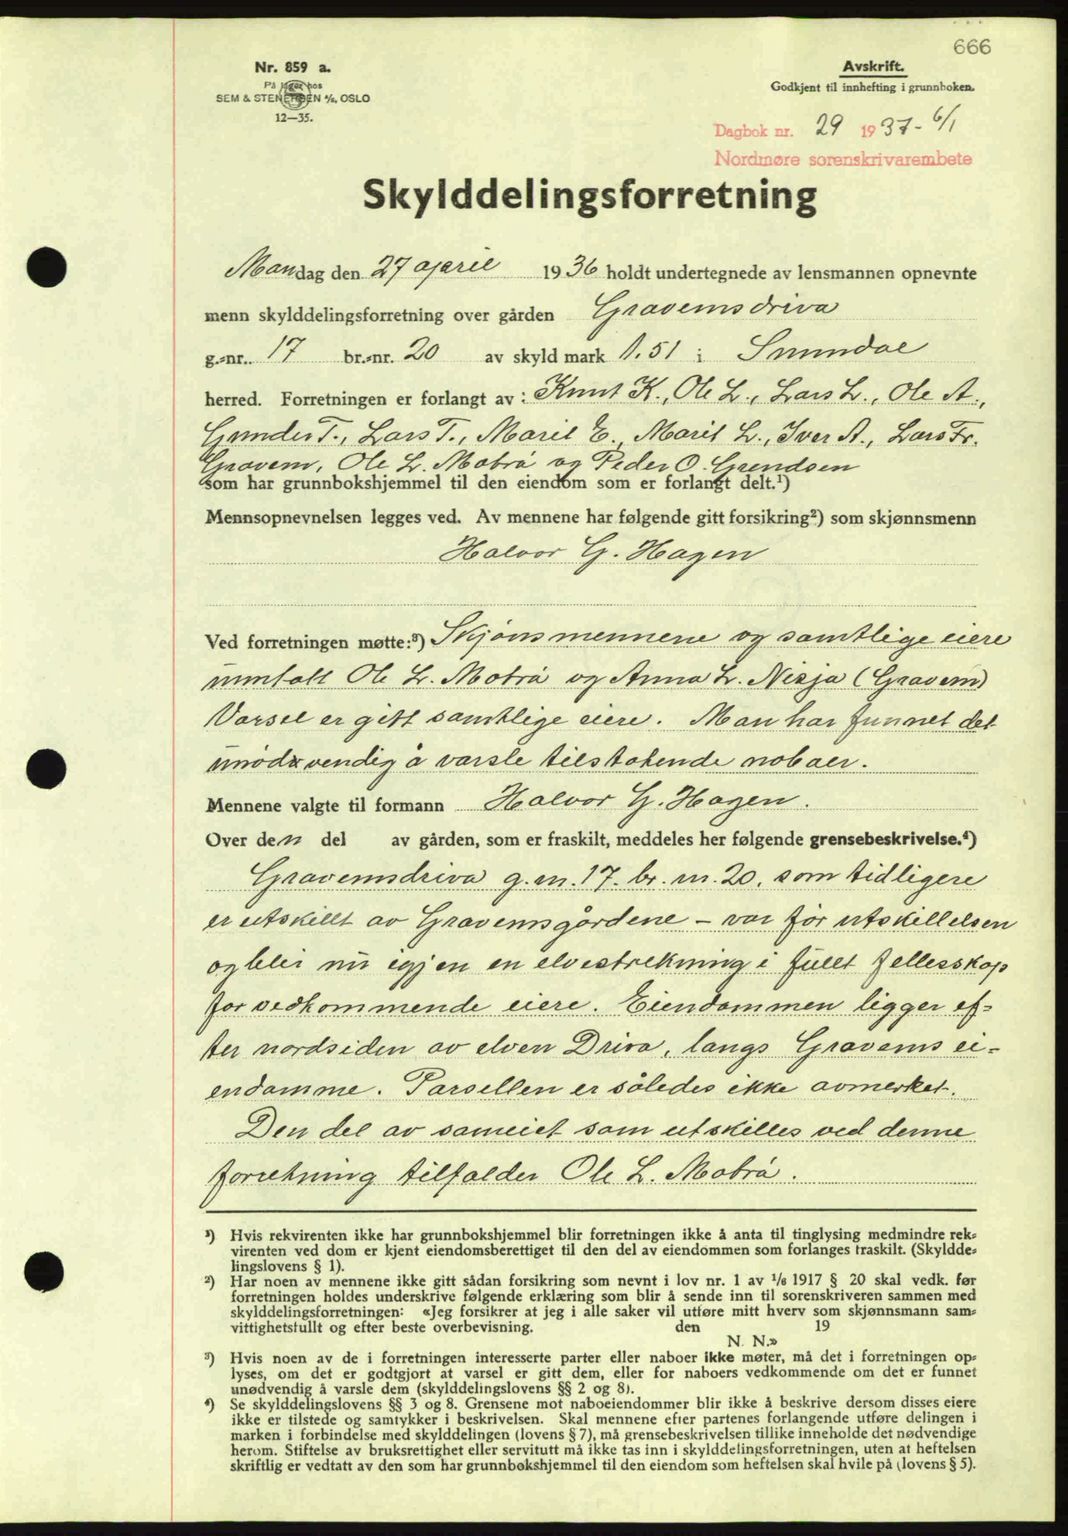 666
Nr. 859 a.
På lager hos
SEM & STENERSEN A/S, OSLO
12—35.
Avskrift.
Godkjent til innhefting i grunnboken.
Dagbok nr. 29 1937 - 6/1
Nordmøre sorenskrivarembete
Skylddelingsforretning
Mandag den 27 april 1936 holdt undertegnede av lensmannen opnevnte
menn skylddelingsforretning over gården Gravemsdriva
g.=nr. 17 br.=nr. 20 av skyld mark 1.51 i Sunndal
herred. Forretningen er forlangt av: Knut K., Ole L., Lars L., Ole A.,
Gunder T., Lars T., Marit E., Marit L., Iver A., Lars Fr.
Gravem, Ole L. Mobrå og Peder O. Grendsen
som har grunnbokshjemmel til den eiendom som er forlangt delt.¹)
Mennsopnevnelsen legges ved. Av mennene har følgende gitt forsikring²) som skjønnsmenn
Halvor G. Hagen
Ved forretningen møtte:³) Skjønsmennene og samtlige eiere
unntatt Ole L. Mobrå og Anna L. Nisja (Gravem)
Varsel er gitt samtlige eiere. Man har funnet det
unødvendig å varsle tilstøtende naboer.
Mennene valgte til formann Halvor G. Hagen.
Over den del av gården, som er fraskilt, meddeles her følgende grensebeskrivelse.⁴)
Gravemsdriva g.nr. 17. br. nr. 20, som tidligere
er utskillt av Gravemsgårdene - var før utskillelsen
og blir nu igjen en elvestrekning i fullt fellesskap
for vedkommende eiere. Eiendommen ligger ef=
ter nordsiden av elven Driva, langs Gravems ei=
endomme. Parsellen er således ikke avmerket.
Den del av sameiet som utskilles ved denne
forretning tilfalder Ole L. Mobrå.
¹) Hvis rekvirenten ikke har grunnbokshjemmel blir forretningen ikke å anta til tinglysing medmindre rek=
virenten ved dom er kjent eiendomsberettiget til den del av eiendommen som forlanges fraskilt. (Skyldde=
lingslovens § 1).
²) Har noen av mennene ikke gitt sådan forsikring som nevnt i lov nr. 1 av 1/6 1917 § 20 skal vedk. før
forretningen holdes underskrive følgende erklæring som blir å sende inn til sorenskriveren sammen med
skylddelingsforretningen: «Jeg forsikrer at jeg i alle saker vil utføre mitt hverv som skjønnsmann sam=
vittighetsfullt og efter beste overbevisning. den 19
N. N.»
³) Hvis noen av de i forretningen interesserte parter eller naboer ikke møter, må det i forretningen op=
lyses, om det er godtgjort at varsel er gitt dem, eller for naboers vedkommende om det er funnet
unødvendig å varsle dem (skylddelingslovens §§ 2 og 8).
⁴) Se skylddelingslovens §§ 3 og 8. Grensene mot naboeiendommer blir ikke å beskrive dersom disses eiere
ikke er tilstede og samtykker i beskrivelsen. Skal mennene efter partenes forlangende utføre delingen i
marken i forbindelse med skylddelingen (lovens § 7), må grensebeskrivelsen tillike inneholde det nødvendige
herom. Stiftelse av bruksrettighet eller servitutt må ikke tas inn i skylddelingsforretningen, uten at heftelsen
skriftlig er vedtatt av den som har grunnbokshjemmel til den eiendom som heftelsen skal hvile på (lovens § 5).